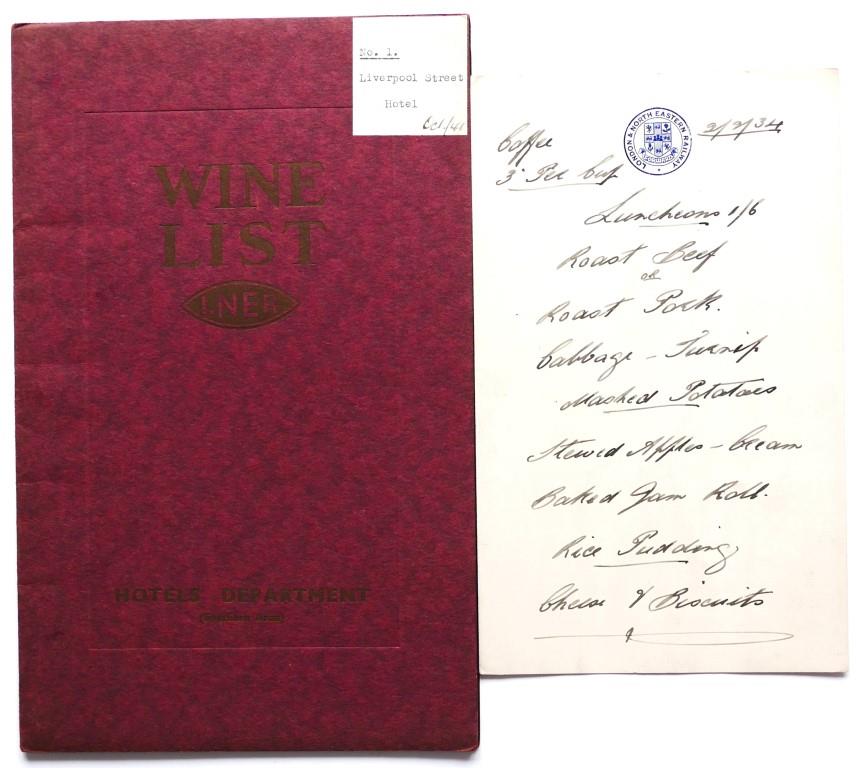 No. 1.
Liverpool Street
Hotel
Oct/41
WINE
LIST
LNER
HOTELS DEPARTMENT
(Southern Area)
LONDON & NORTH EASTERN RAILWAY
2/2/34
Coffee
3d Per Cup
Luncheons 1/6
Roast Beef
or
Roast Pork.
Cabbage - Turnip
Mashed Potatoes
Stewed Apples - Cream
Baked Jam Roll.
Rice Pudding
Cheese & Biscuits